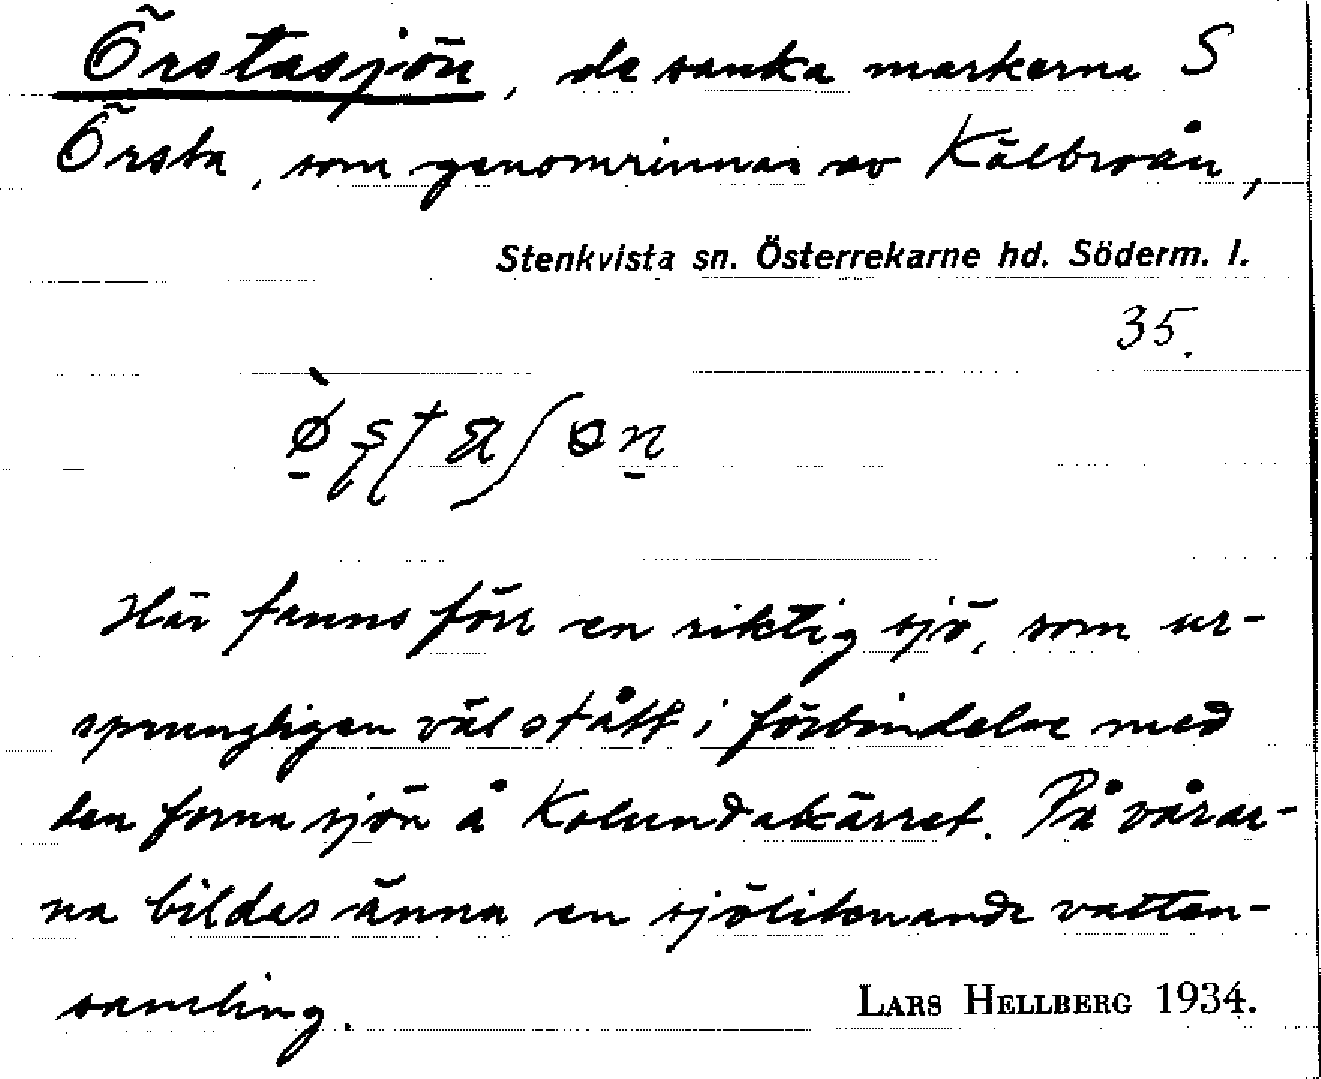 Örstasjön, de sanka markerna S
Örsta, som genomrinnas av Kälbroån,
Stenkvista sn. Österrekarne hd. Söderm. l.
35.
Här fanns förr en riktig sjö, som ur-
sprungligen väl stått i förbindelse med
den forna sjön å Kolundakärret. På vårar-
na bildas änna en sjöliknande vatten-
samling.
LARS HELLBERG 1934.